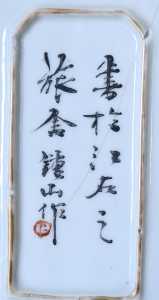 書於江右之
旅舍鏡山作